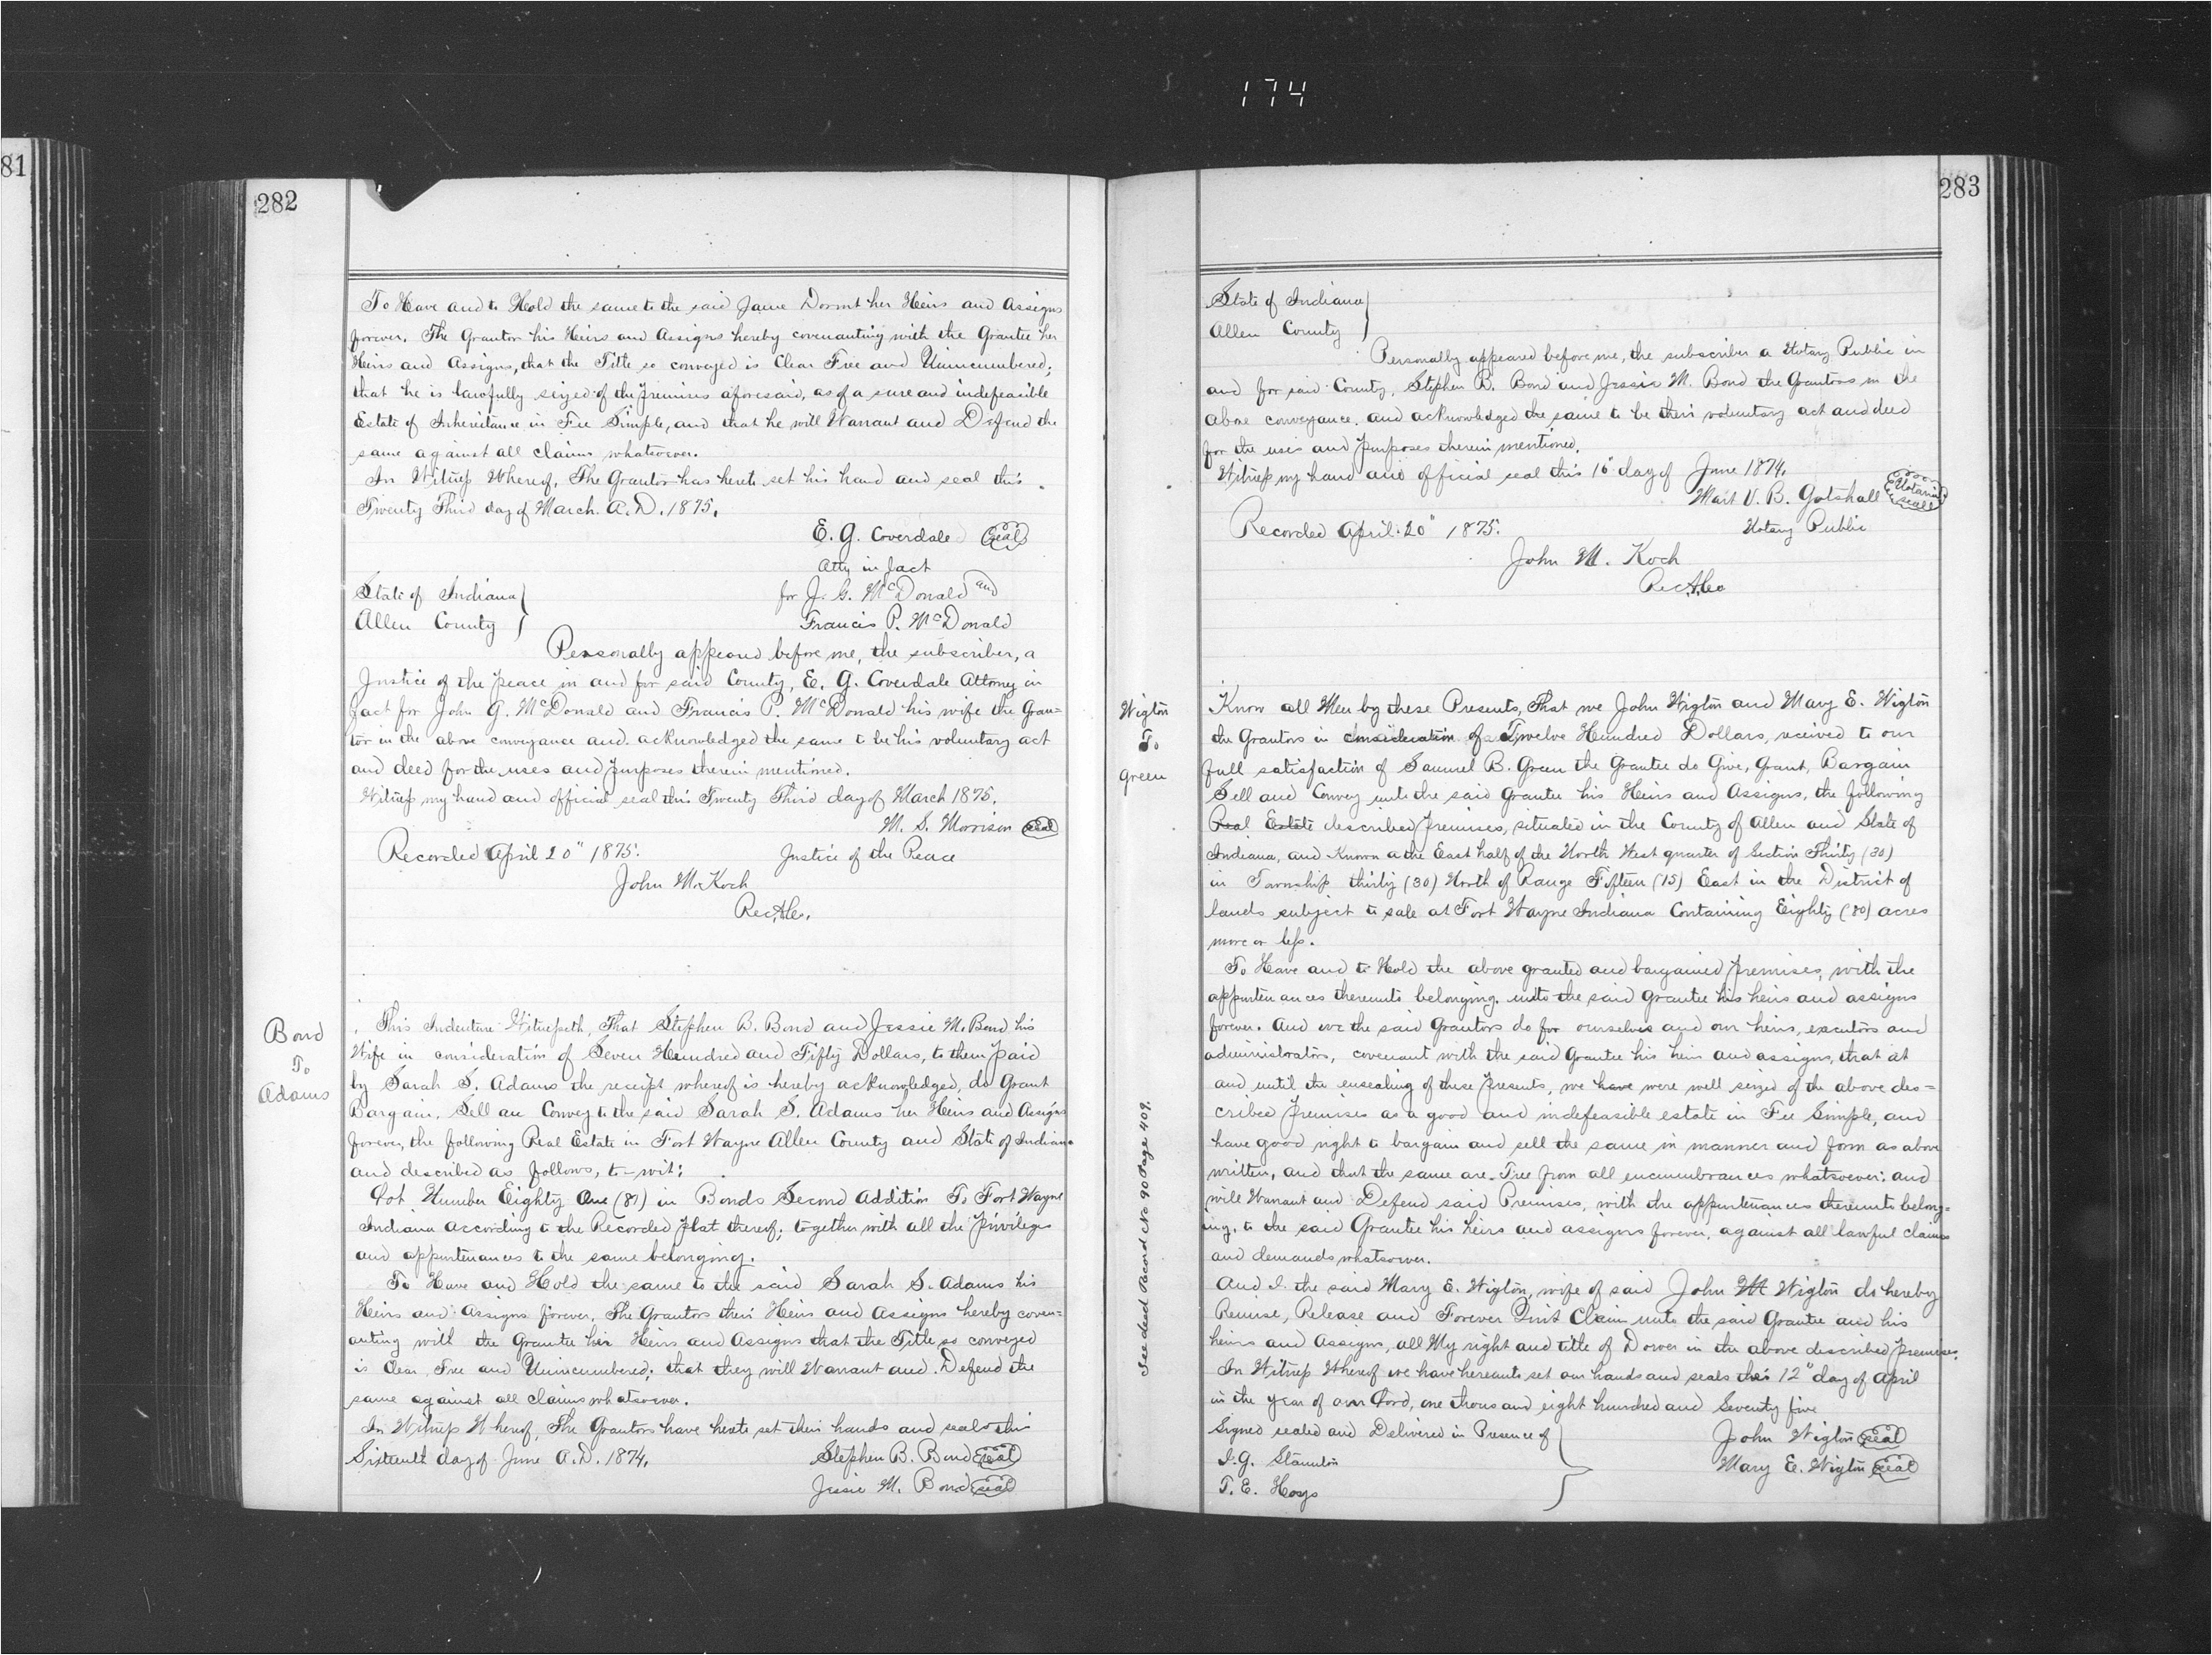 174
81
282
To Have and to Hold the same to the said Jane Dormt her Heirs and Assigns
forever, The Grantor his Heirs and Assigns hereby covenanting with the Grantee her
Heirs and Assigns, that the Title so conveyed is Clear Free and Unincumbered;
that he is lawfully seized of the premises aforesaid, as of a sure and indefeasible
Estate of Inheritance in Fee Simple, and that he will Warrant and Defend the
same against all claims whatsoever.
In Witness Whereof, The Grantor has hereto set his hand and seal this
Twenty Third day of March. A.D. 1875.
E. G. Coverdale Seal
Atty in fact
State of Indiana for J. G. McDonald and
Allen County Francis P. McDonald
Personally appeared before me, the subscriber, a
Justice of the peace in and for said County, E. G. Coverdale Attorney in
fact for John G. McDonald and Francis P. McDonald his wife the Gran=
tor in the above conveyance and acknowledged the same to be his voluntary act
and deed for the uses and purposes therein mentioned.
Witness my hand and official seal this Twenty Third day of March 1875.
M. S. Morrison Seal
Recorded April 20" 1875. Justice of the Peace
John M. Koch
Rec.A.Co.
Bond
To
Adams
This Indenture Witnesseth, That Stephen B. Bond and Jessie M. Bond his
Wife in consideration of Seven Hundred and Fifty Dollars, to them paid
by Sarah S. Adams the receipt whereof is hereby acknowledged, do Grant
Bargain, Sell an Convey to the said Sarah S. Adams her Heirs and Assigns
forever, the following Real Estate in Fort Wayne Allen County and State of Indiana
and described as follows, to-wit:
Lot Number Eighty One (81) in Bonds Second Addition To Fort Wayne
Indiana according to the Recorded plat thereof; together with all the privileges
and appurtenances to the same belonging.
To Have and Hold the same to the said Sarah S. Adams his
Heirs and Assigns forever, The Grantors their Heirs and Assigns hereby coven=
anting with the Grantee her Heirs and Assigns that the Title so conveyed
is Clear, Free and Unincumbered; that they will Warrant and Defend the
same against all claims whatsoever.
In Witness Whereof, The Grantors have hereto set their hands and seals this
Sixteenth day of June A.D. 1874. Stephen B. Bond Seal
Jessie M. Bond seal
283
State of Indiana
Allen County
Personally appeared before me, the subscriber a Notary Public in
and for said County, Stephen B. Bond and Jessie M. Bond the Grantors in the
above conveyance, and acknowledged the same to be their voluntary act and deed
for the uses and purposes therein mentioned.
Witness my hand and official seal this 16" day of June 1874.
Mart V. B. Gotshall Notarial seal
Recorded April 20" 1875. Notary Public
John M. Koch
Rec.A.Co
Wigton
To
Green
See deed Record No 90 Page 409.
Know all Men by these Presents, That we John Wigton and Mary E. Wigton
the Grantors in consideration of Twelve Hundred Dollars, received to our
full satisfaction of Samuel B. Green the Grantee do Give, Grant, Bargain
Sell and Convey unto the said Grantee his Heirs and Assigns, the following
Real Estate described premises, situated in the County of Allen and State of
Indiana, and Known a the East half of the North West quarter of Section Thirty (30)
in Township thirty (30) North of Range Fifteen (15) East in the District of
lands subject to sale at Fort Wayne Indiana Containing Eighty (80) acres
more or less.
To Have and to Hold the above granted and bargained premises, with the
appurtenances thereunto belonging, unto the said Grantee his heirs and assigns
forever. And we the said Grantors do for ourselves and our heirs, executors and
administrators, covenant with the said Grantee his heirs and assigns, that at
and until the ensealing of these presents, we have were well seized of the above des=
cribed premises as a good and indefeasible estate in Fee Simple, and
have good right to bargain and sell the same in manner and form as above
written, and that the same are Free from all encumbrances whatsoever: and
will Warrant and Defend said Premises, with the appurtenances thereunto belong=
ing, to the said Grantee his heirs and assigns forever, against all lawful claims
and demands whatsoever.
And I the said Mary E. Wigton, wife of said John M Wigton do hereby
Remise, Release and Forever Quit Claim unto the said Grantee and his
heirs and Assigns, all My right and title of Dower in the above described premises.
In Witness Whereof we have hereunto set our hands and seals this 12" day of April
in the year of our Lord, one thousand eight hundred and Seventy five
Signed sealed and Delivered in Presence of John Wigton Seal
I. G. Mary E. Wigton Seal
T. E. Hoys